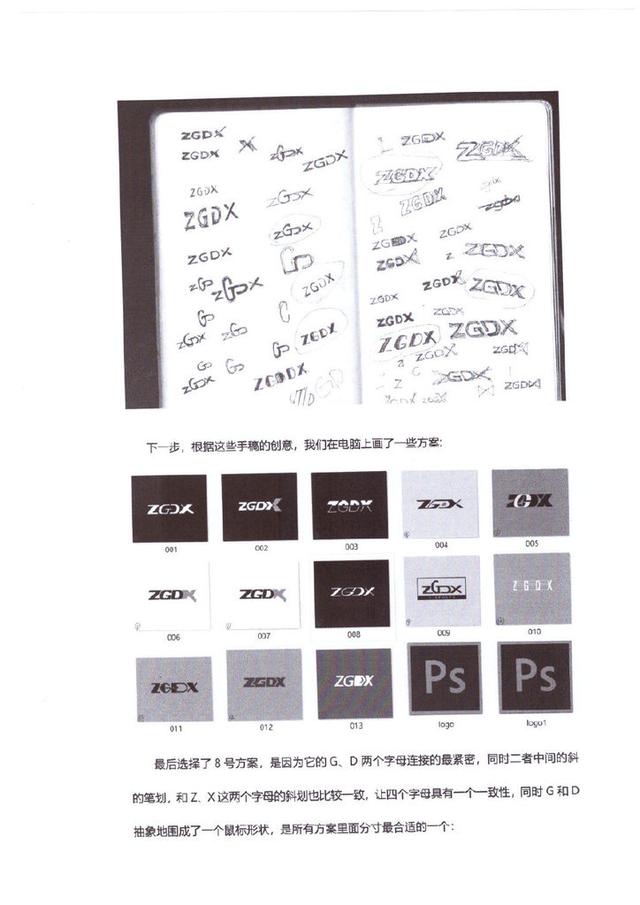 ZGDX
ZGDX
X
ZGDX
ZGDX
ZGDX
ZGDX
ZGDX
ZGDX
ZGDX
ZGDX
ZGDX
ZGDX
ZGDX
ZGDX
ZGDX
ZGDX
ZGDX
ZGDX
ZGDX
ZGDX
ZGDX
ZGDX
ZGDX
ZGDX
ZGDX
ZGDX
ZGDX
ZGDX
下一步，根据这些手稿的创意，我们在电脑上画了一些方案：
ZGDX ZGDX ZGDX ZGDX ZGDX
001 002 003 004 005
ZGDX ZGDX ZGDX ZGDX ZGDX
006 007 008 009 010
ZGDX ZGDX ZGDX Ps Ps
011 012 013 logo logo1
最后选择了 8 号方案，是因为它的 G、D 两个字母连接的最紧密，同时二者中间的斜
的笔划，和 Z、X 这两个字母的斜划也比较一致，让四个字母具有一个一致性，同时 G 和 D
抽象地围成了一个鼠标形状，是所有方案里面分寸最合适的一个：